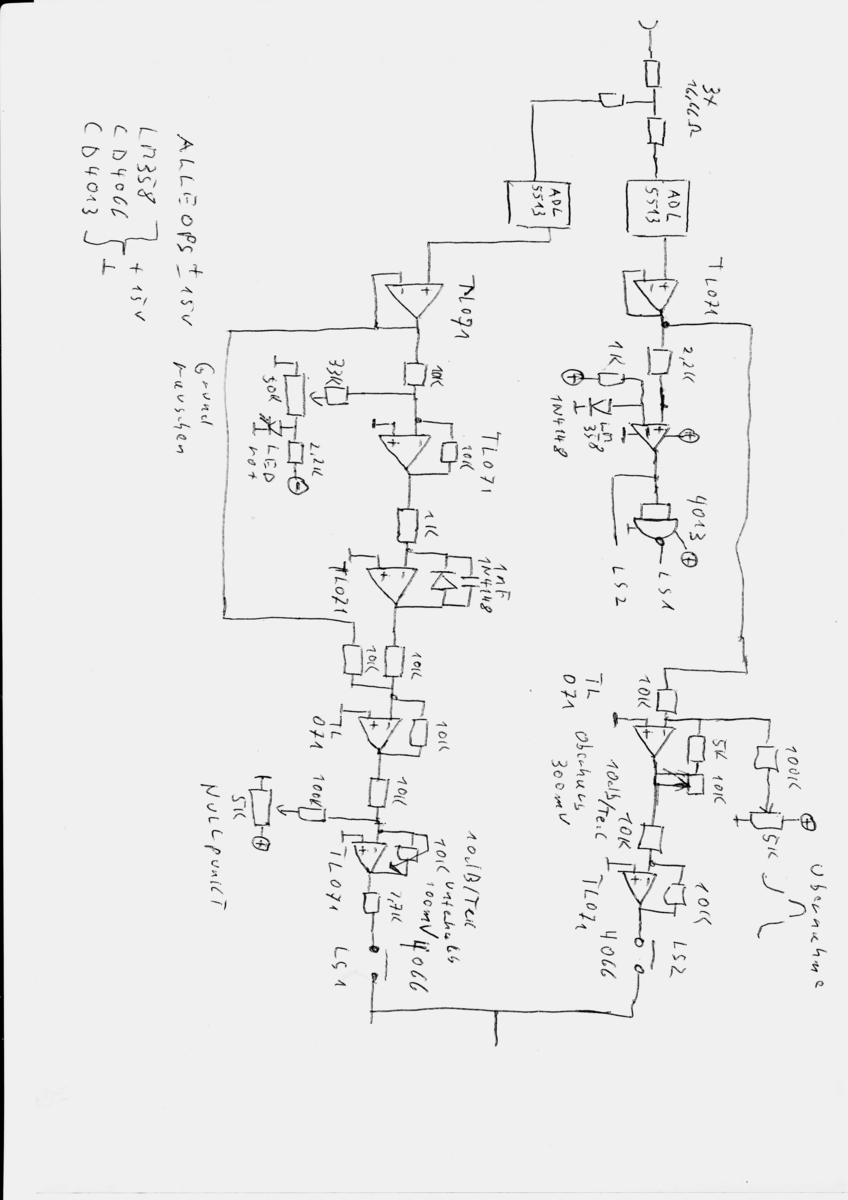 3x
16,66Ω
ADL
5513
ADL
5513
TL071
2,2K
1K
1N4148
LM
358
4013
LS1
LS2
TL071
10K
33K
30K
2,2K
LED
rot
Grund
rauschen
ALLE OPs ± 15V
LM358
CD4066
CD4013
+15V
⊥
TL071
10K
1K
TL071
1nF
1N4148
10K
10K
TL
071
10K
10K
100K
5K
NULLPUNKT
TL071
10K
10dB/Teil
unterhalb
LS1
4066
10K
TL
071
5K
10K
100K
5K
Übernahme
10dB/Teil
Oberhalb
300mV
10K
TL071
10K
LS2
4066